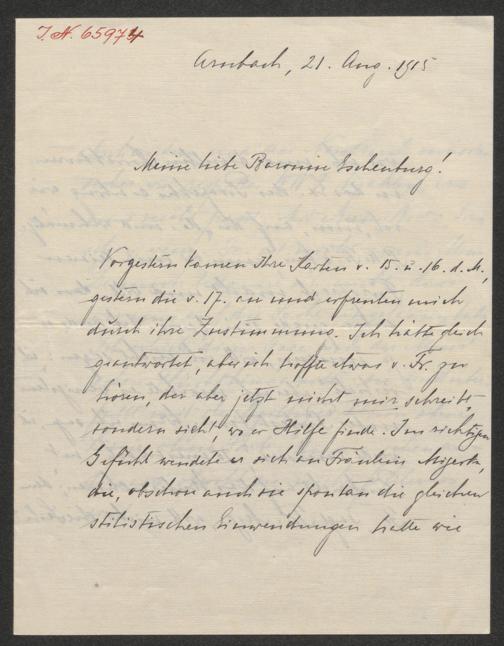 J. N. 65974
Arnbach, 21. Aug. 1915
Meine liebe Baronine Eschenburg!
Vorgestern kamen Ihre Karten v. 15. u. 16. d. M.,
gestern die v. 17. an und erfreuten mich
durch ihre Zustimmung. Ich hätte gleich
geantwortet, aber ich hoffte etwas v. Fr. zu
hören, der aber jetzt nicht mir schreibt,
sondern sieht, wo er Hilfe finde. Im richtigen
Gefühl wendete er sich an Fräulein
die, obschon auch sie spontan die gleichen
stilistischen Einwendungen hatte wie